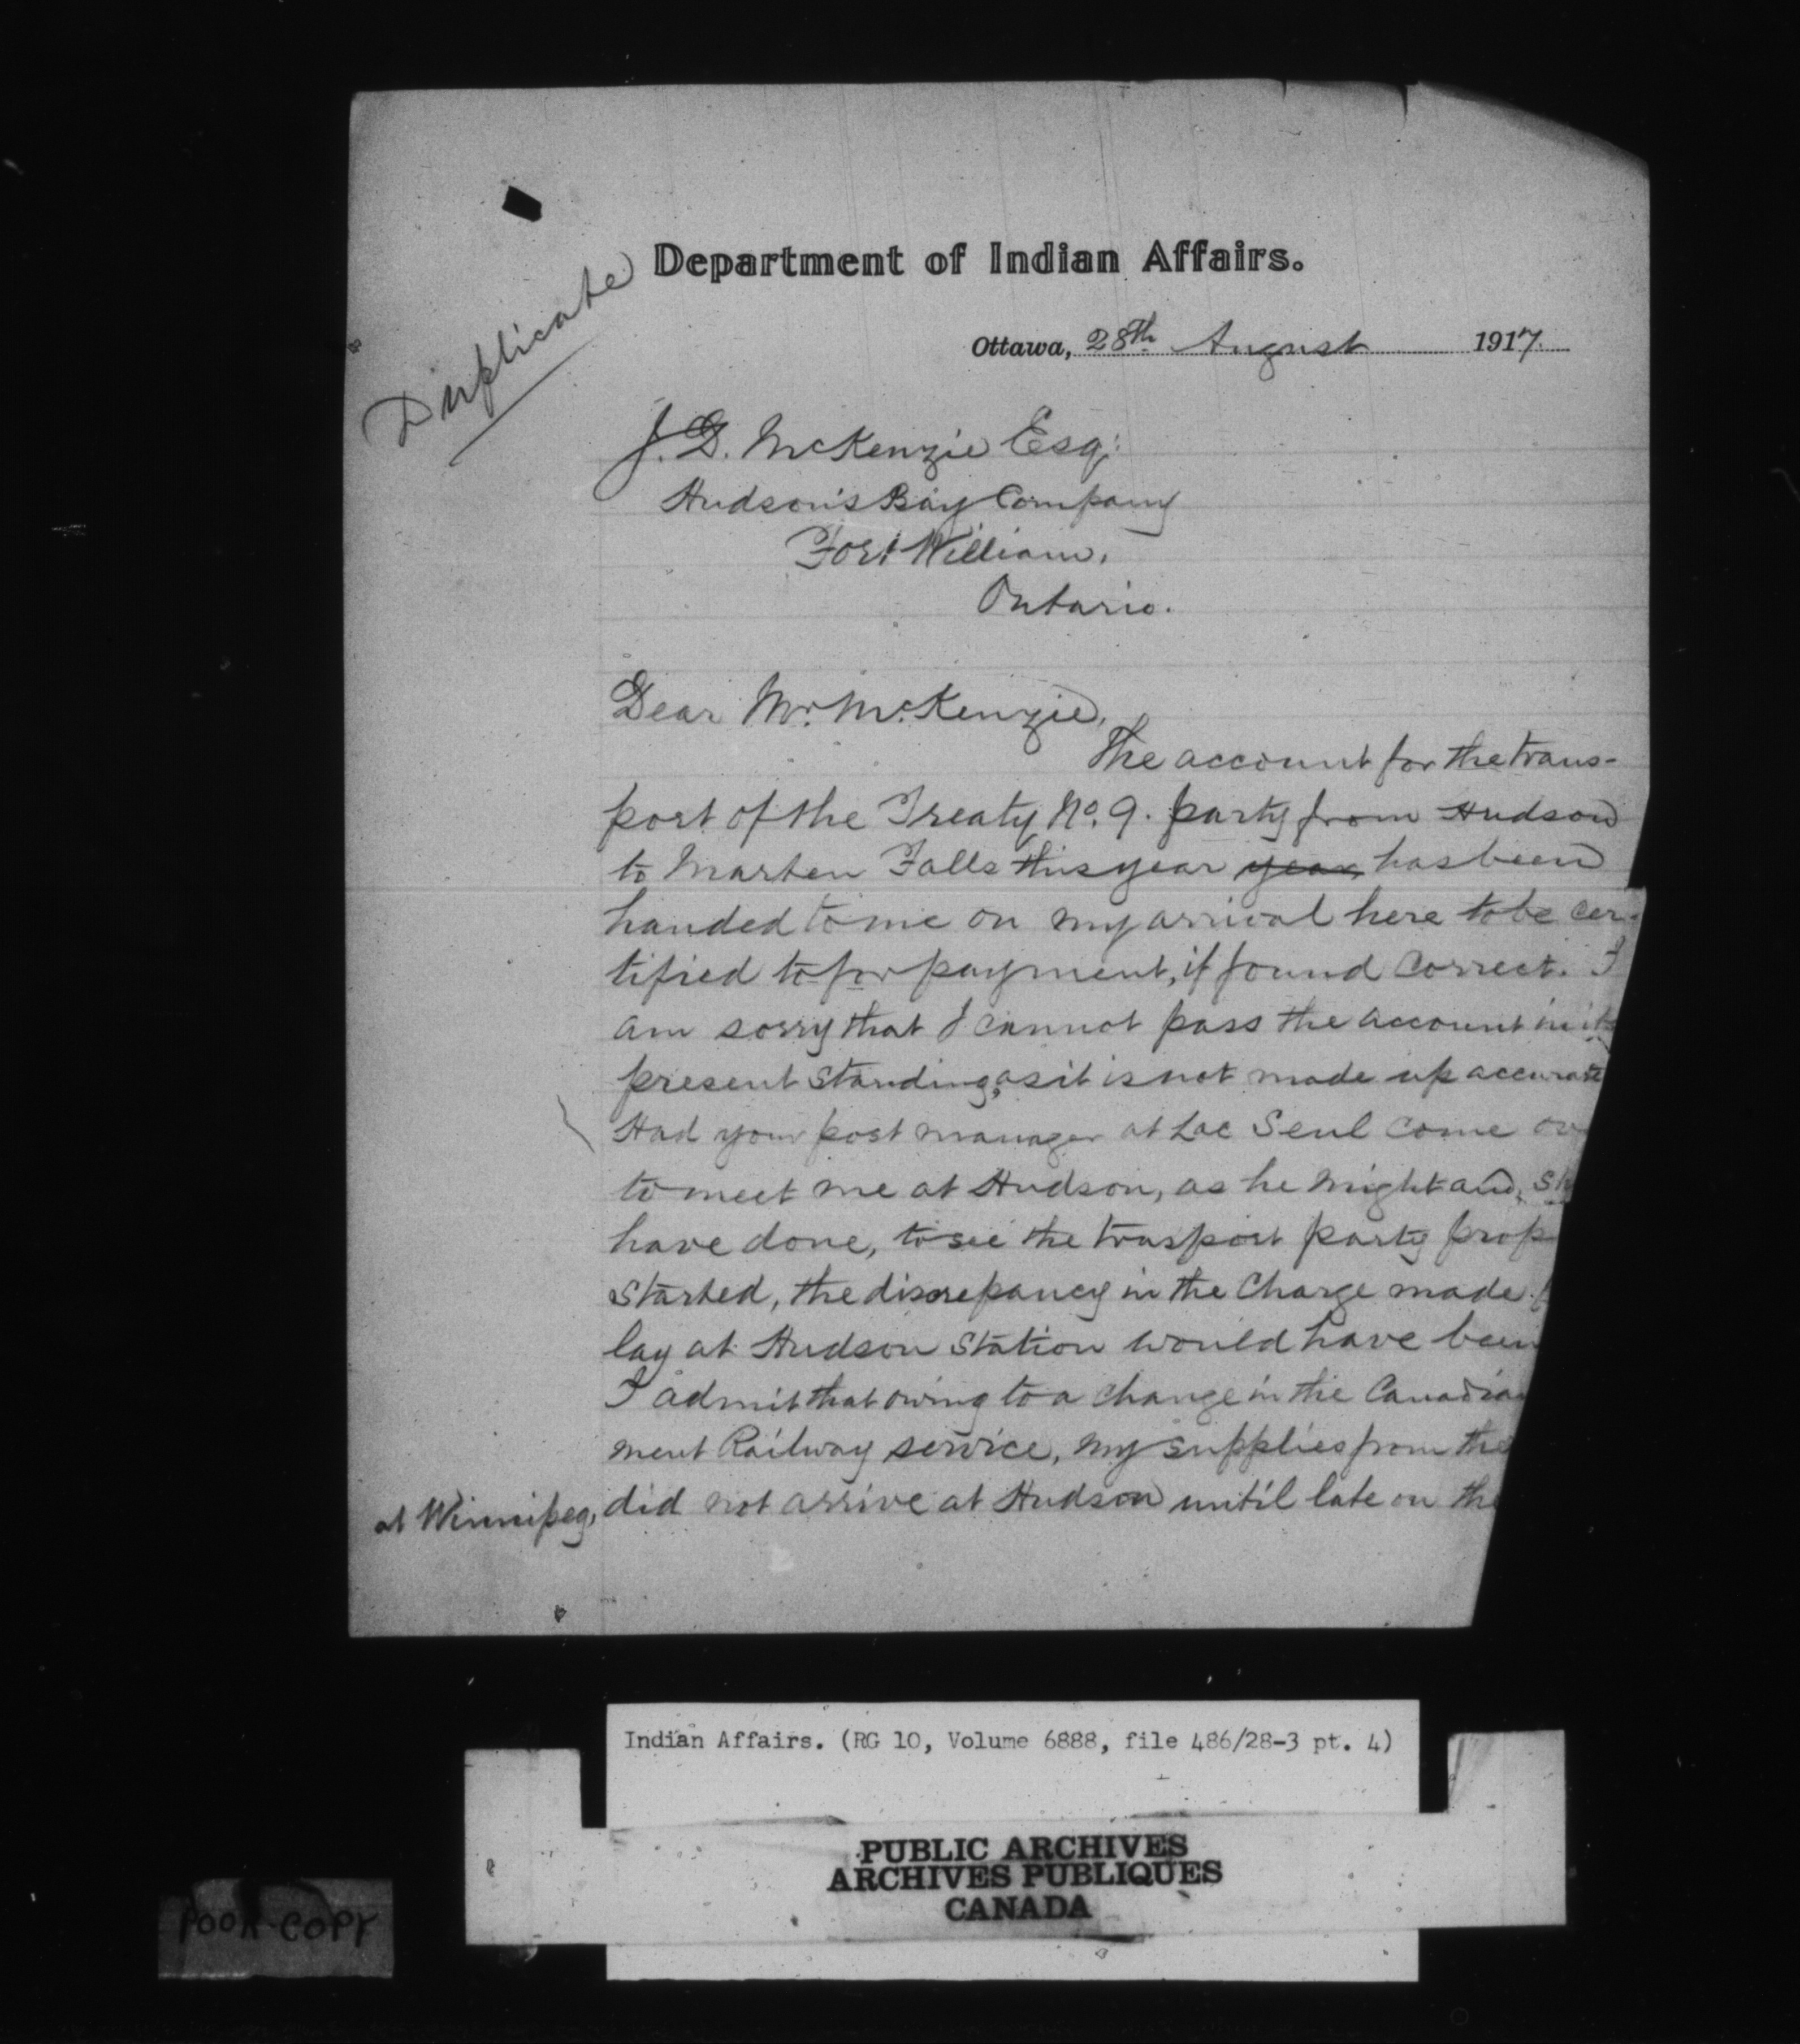 Department of Indian Affairs.
Duplicate
Ottawa, 28th August 1917.
J. D. McKenzie Esq;
Hudson's Bay Company
Fort William,
Ontario.
Dear Mr. McKenzie,
The account for the trans-
port of the Treaty No. 9. party from Hudson
to Marten Falls this year year has been
handed to me on my arrival here to be cer-
tified to for payment, if found correct. I
am sorry that I cannot pass the account in its
present standing, as it is not made up accurate
Had your post manager at Lac Seul come ov
to meet me at Hudson, as he might and, sh
have done, to see the trasport party prop
started, the discrepancy in the charge made
lay at Hudson station would have been
I admit that owing to a change in the Canadian
ment Railway service, my supplies from the
at Winnipeg, did not arrive at Hudson until late on the
Indian Affairs. (RG 10, Volume 6888, file 486/28-3 pt. 4)
PUBLIC ARCHIVES
ARCHIVES PUBLIQUES
CANADA
POOR COPY